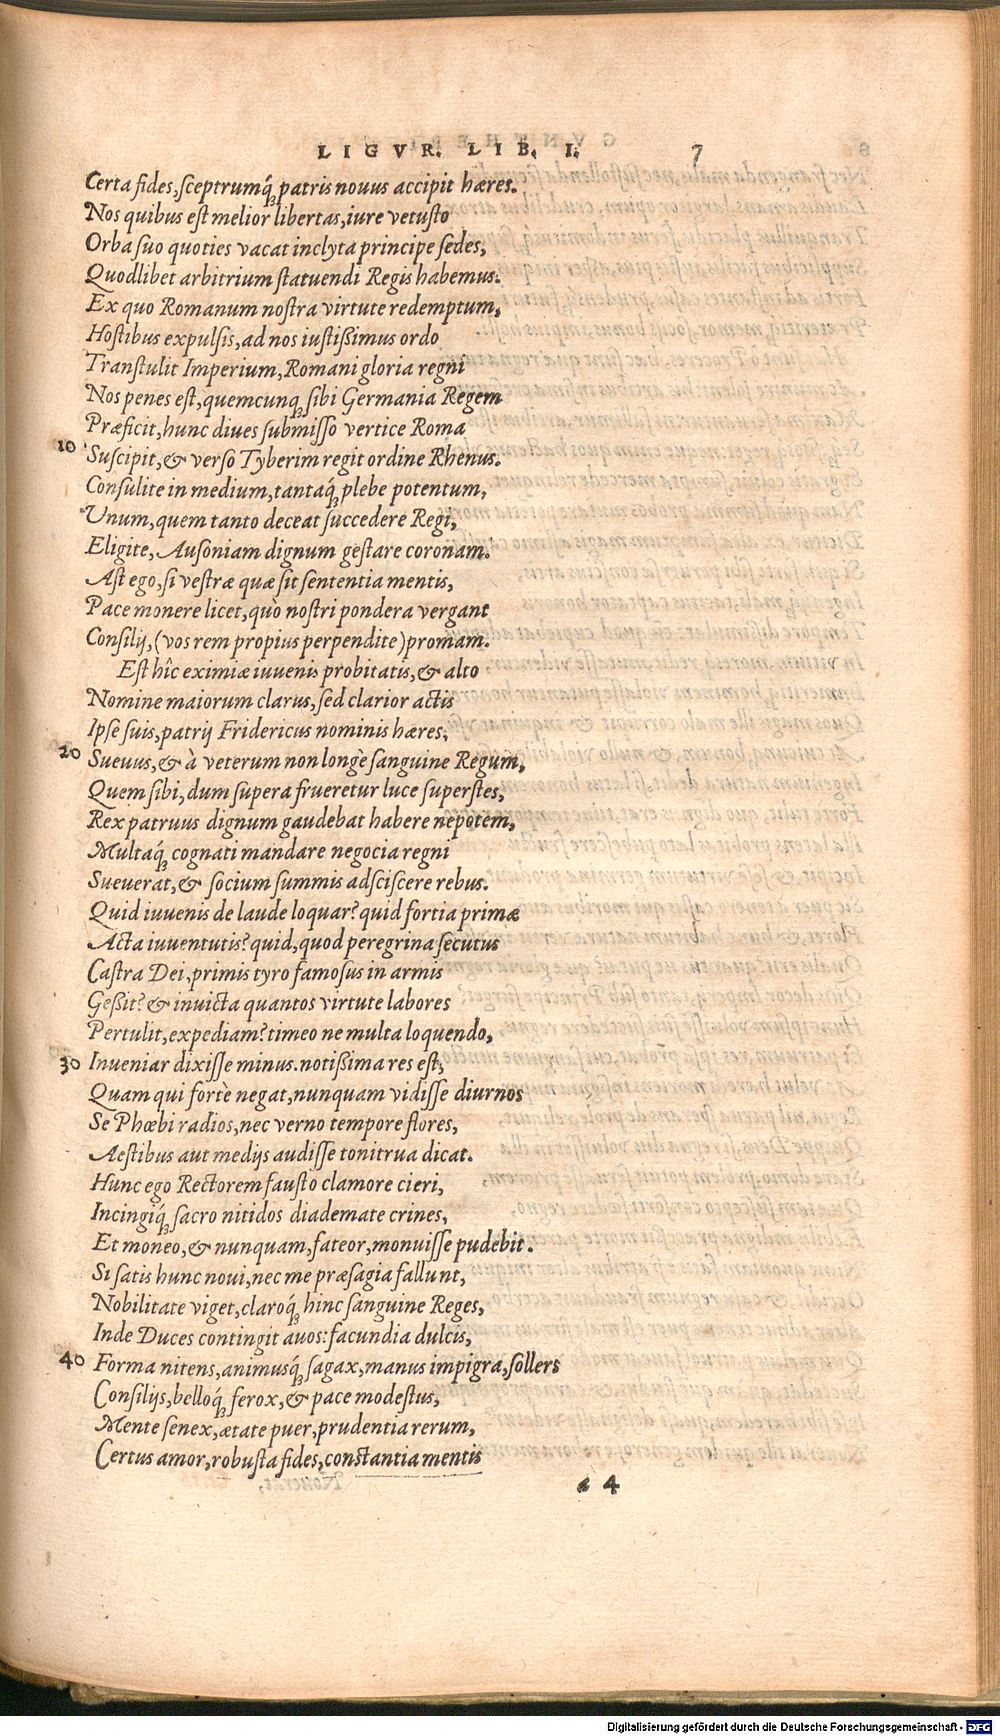 LIGVR. LIB. I. 7
Certa fides, sceptrumq́; patris nouus accipit hæres.
Nos quibus est melior libertas, iure vetusto
Orba suo quoties vacat inclyta principe sedes,
Quodlibet arbitrium statuendi Regis habemus.
Ex quo Romanum nostra virtute redemptum,
Hostibus expulsis, ad nos iustißimus ordo
Transtulit Imperium, Romani gloria regni
Nos penes est, quemcunq; sibi Germania Regem
Præficit, hunc diues submisso vertice Roma
10 Suscipit, & verso Tyberim regit ordine Rhenus.
Consulite in medium, tantaq́; plebe potentum,
Unum, quem tanto deceat succedere Regi,
Eligite, Ausoniam dignum gestare coronam.
Ast ego, si vestræ quæ sit sententia mentis,
Pace monere licet, quò nostri pondera vergant
Consilij, (vos rem propius perpendite) promam.
Est hîc eximiæ iuvenis probitatis, & alto
Nomine maiorum clarus, sed clarior actis
Ipse suis, patrij Fridericus nominis hæres,
20 Suevus, & à veterum non longè sanguine Regum,
Quem sibi, dum supera frueretur luce superstes,
Rex patruus dignum gaudebat habere nepotem,
Multaq́; cognati mandare negocia regni
Sueverat, & socium summis adsciscere rebus.
Quid iuvenis de laude loquar? quid fortia primæ
Acta iuventutis? quid, quod peregrina secutus
Castra Dei, primis tyro famosus in armis
Geßit? & invicta quantos virtute labores
Pertulit, expediam? timeo ne multa loquendo,
30 Inveniar dixisse minus. notißima res est,
Quam qui fortè negat, nunquam vidisse diurnos
Se Phœbi radios, nec verno tempore flores,
Aestibus aut medijs audisse tonitrua dicat.
Hunc ego Rectorem fausto clamore cieri,
Incingiq́; sacro nitidos diademate crines,
Et moneo, & nunquam, fateor, monuisse pudebit.
Si satis hunc novi, nec me præsagia fallunt,
Nobilitate viget, claroq́; hinc sanguine Reges,
Inde Duces contingit avos: facundia dulcis,
40 Forma nitens, animusq́; sagax, manus impigra, sollers
Consilijs, belloq́; ferox, & pace modestus,
Mente senex, ætate puer, prudentia rerum,
Certus amor, robusta fides, constantia mentis
a 4
Digitalisierung gefördert durch die Deutsche Forschungsgemeinschaft - DFG